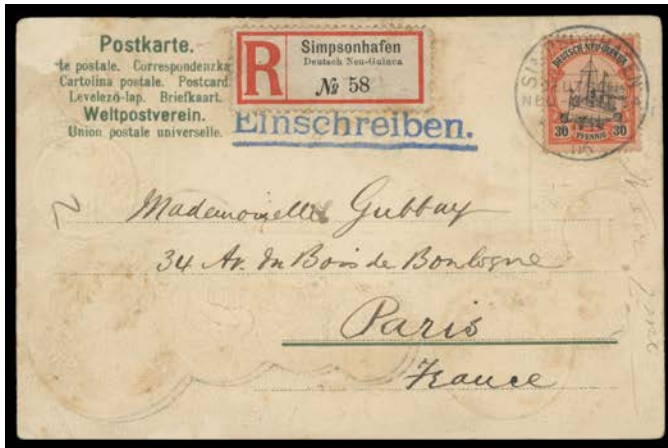 Postkarte.
te postale. Correspondenzka
Cartolina postale. Postcard
Levelező-lap. Briefkaart.
Weltpostverein.
Union postale universelle.
R
Simpsonhafen
Deutsch Neu-Guinea
№ 58
Einschreiben.
DEUTSCH-NEU-GUINEA
30 PFENNIG 30
SIMPSONHAFEN
Mademoiselle Gubbay
34 Av. du Bois de Boulogne
Paris
France